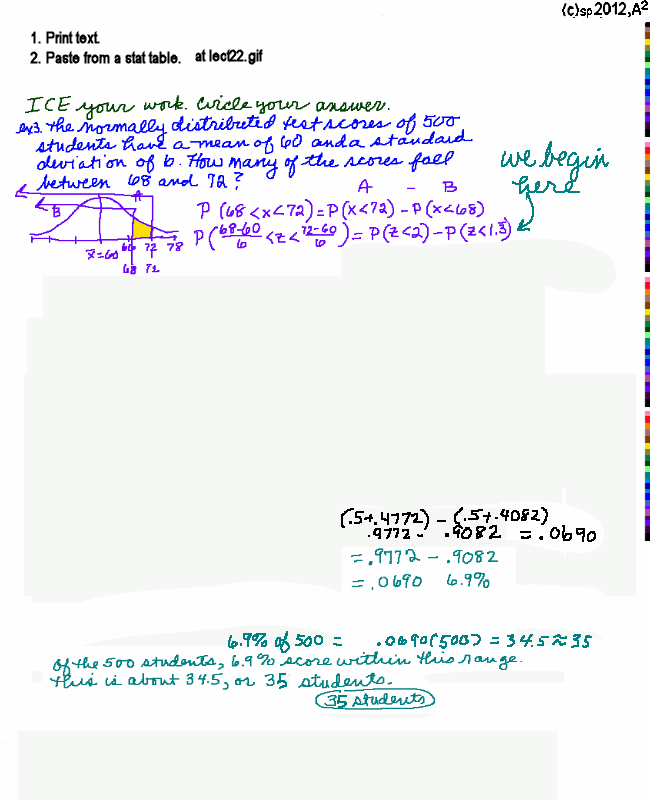 (c)sp2012,A²
1. Print text.
2. Paste from a stat table. at lect22.gif
ICE your work. Circle your answer.
ex3. The normally distributed test scores of 500
students have a mean of 60 and a standard
deviation of 6. How many of the scores fall
between 68 and 72?
we begin
here
A - B
A
B
P(68<x<72)=P(x<72)-P(x<68)
P(68-60/6<z<72-60/6)=P(z<2)-P(z<1.3)
x̄=60 66 72 78
68 72
(.5+.4772)-(.5+.4082)
.9772- .9082 =.0690
=.9772-.9082
=.0690 6.9%
6.9% of 500 = .0690(500)=34.5≈35
Of the 500 students, 6.9% score within this range.
This is about 34.5, or 35 students.
35 students